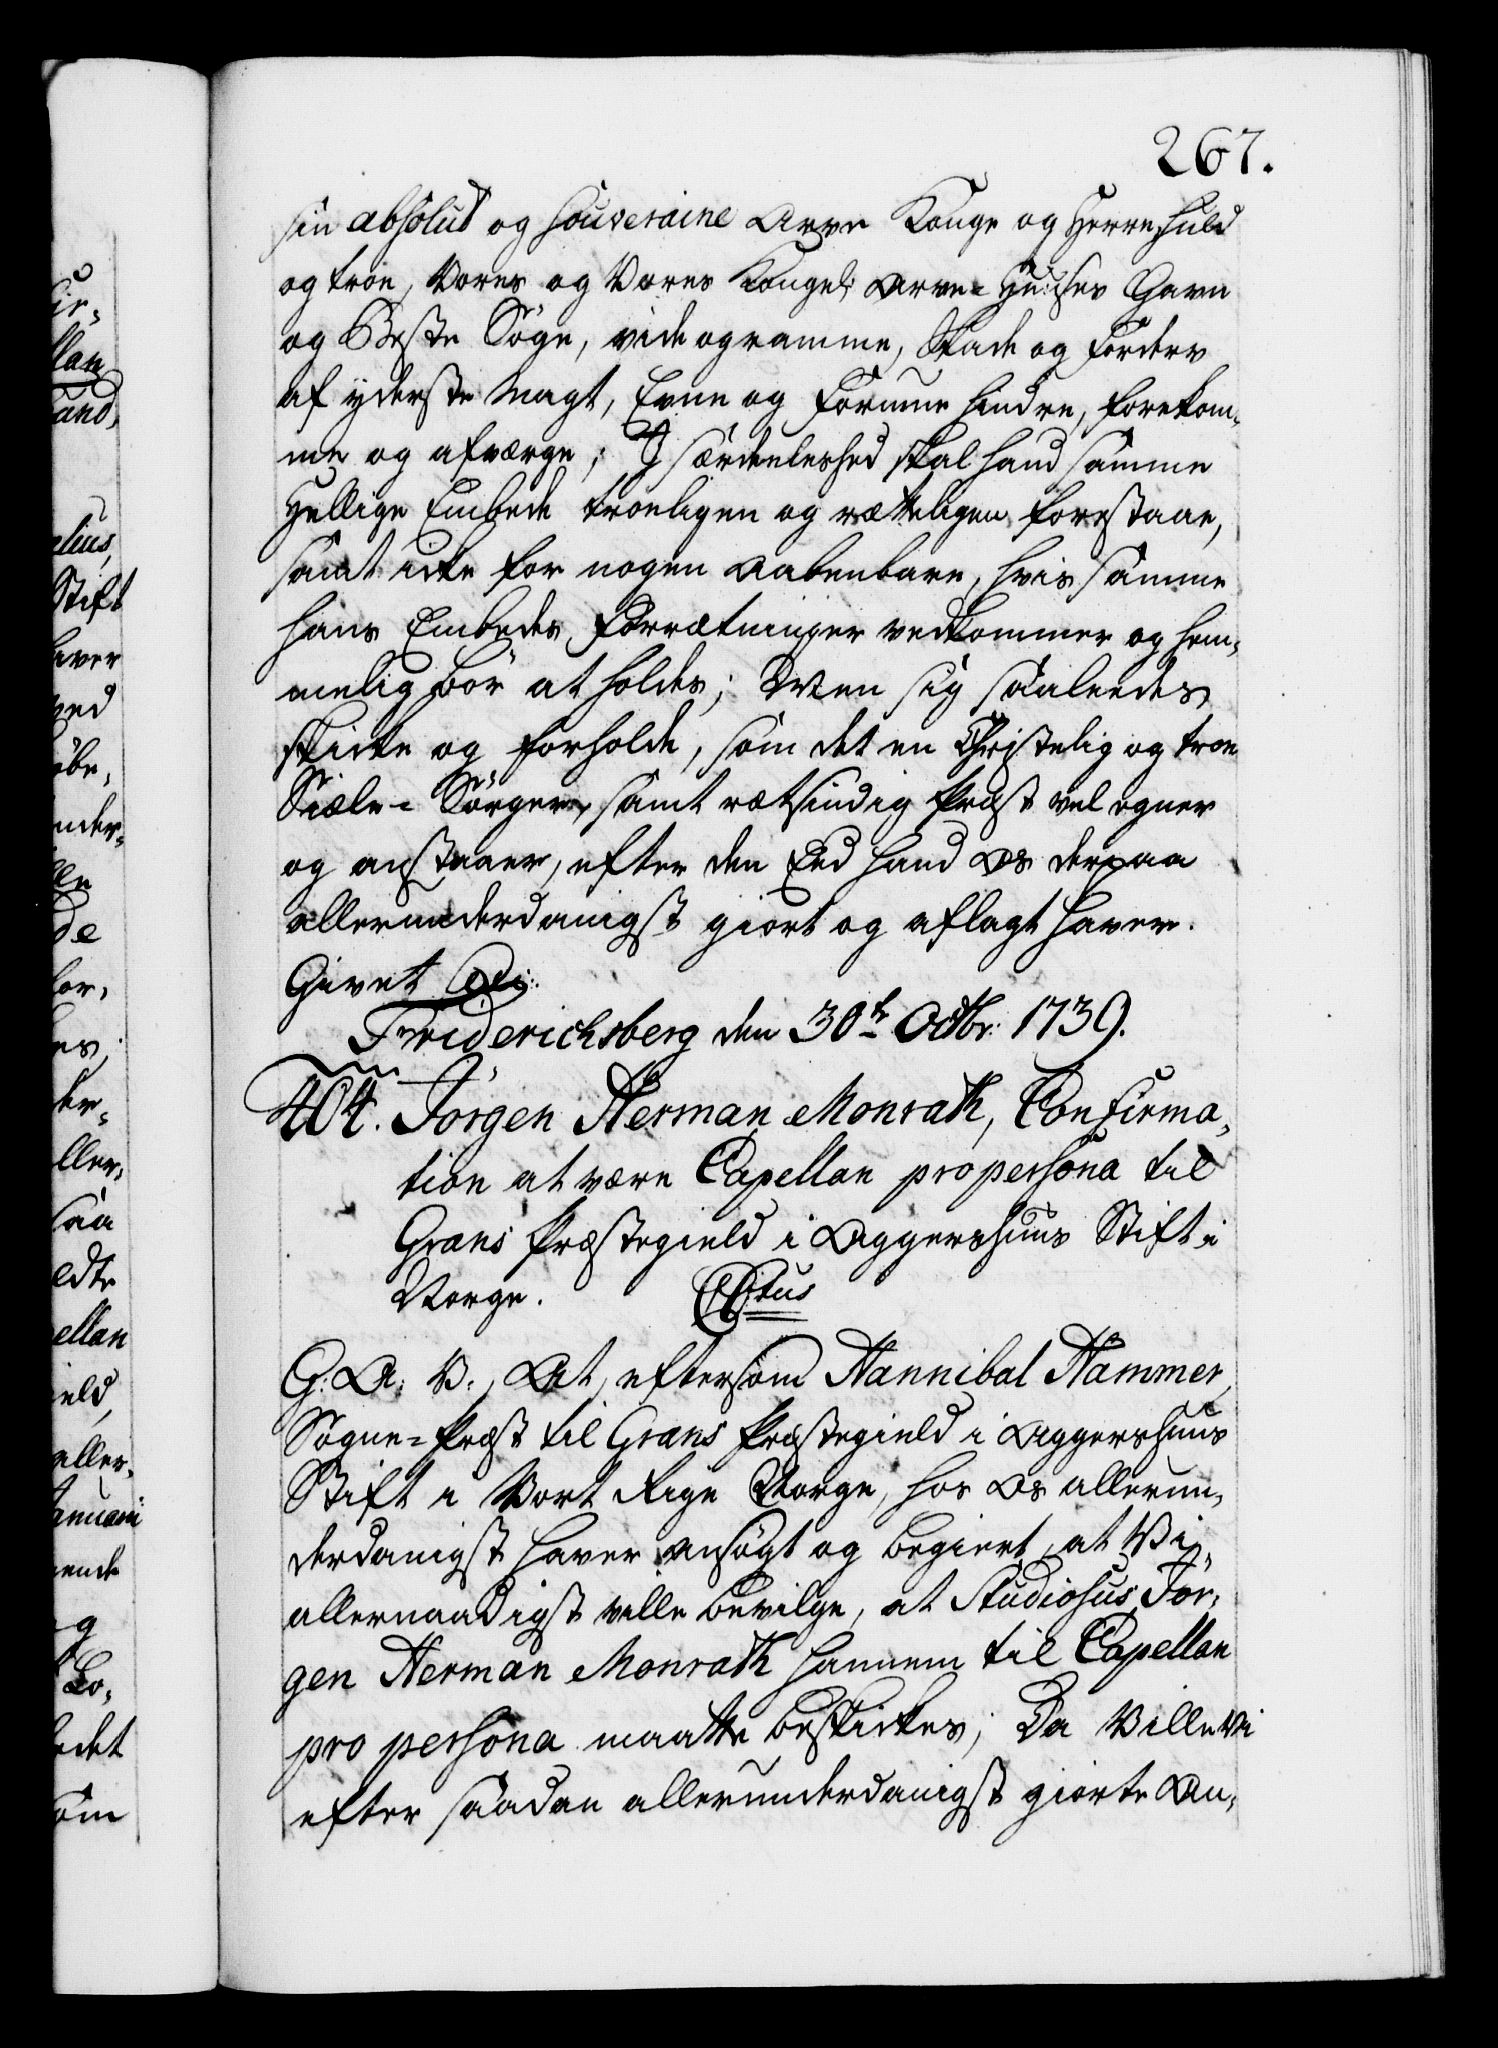 267.
sin absolut og souveraine Arve Konge og Herre huld
og troe, Vores og Vores Kongel: Arve-Huuses Gavn
og Beste Søge, vide og ramme, Skade og Forderv
af yderste Magt, Evne og Formue hindre, forekom-
me og afværge; I særdeleshed skal hand samme
Hellige Embede troeligen og rætteligen forestaae,
samt icke for nogen aabenbare, hvis samme
hans Embedes Forrætninger vedkommer og hem-
melig bør at holdes; Men sig saaleedes
skicke og forholde, som det en Christelig og troe
Siæle-Sørger, samt rætsindig Præst vel egner
og anstaaer, efter den Eed hand Os derpaa
allerunderdanigst giort og aflagt haver.
Givet
Friderichsberg den 30te Octbr: 1739.
404. Jörgen Herman Monrath, Confirma-
tion at være Capellan pro persona til
Grans Præstegield i Aggershuus Stift i
Norge.
G: A: V:, At, eftersom Hannibal Hammer,
Sogne-Præst til Grans Præstegield i Aggershuus
Stift i Vort Rige Norge, hos Os allerun-
derdanigst haver ansøgt og begiert, at Vi
allernaadigst ville bevilge, at Studiosus Jör-
gen Herman Monrath hannem til Capellan
pro persona maatte beskickes; Da Ville Vi
efter saadan allerunderdanigst giorte An-
lan
and,
elius,
Stift
haver
ved
nder-
de
for,
es,
ller-
saa
edte
ellan
ield,
aller-
anuarii
ende
g
edet
som